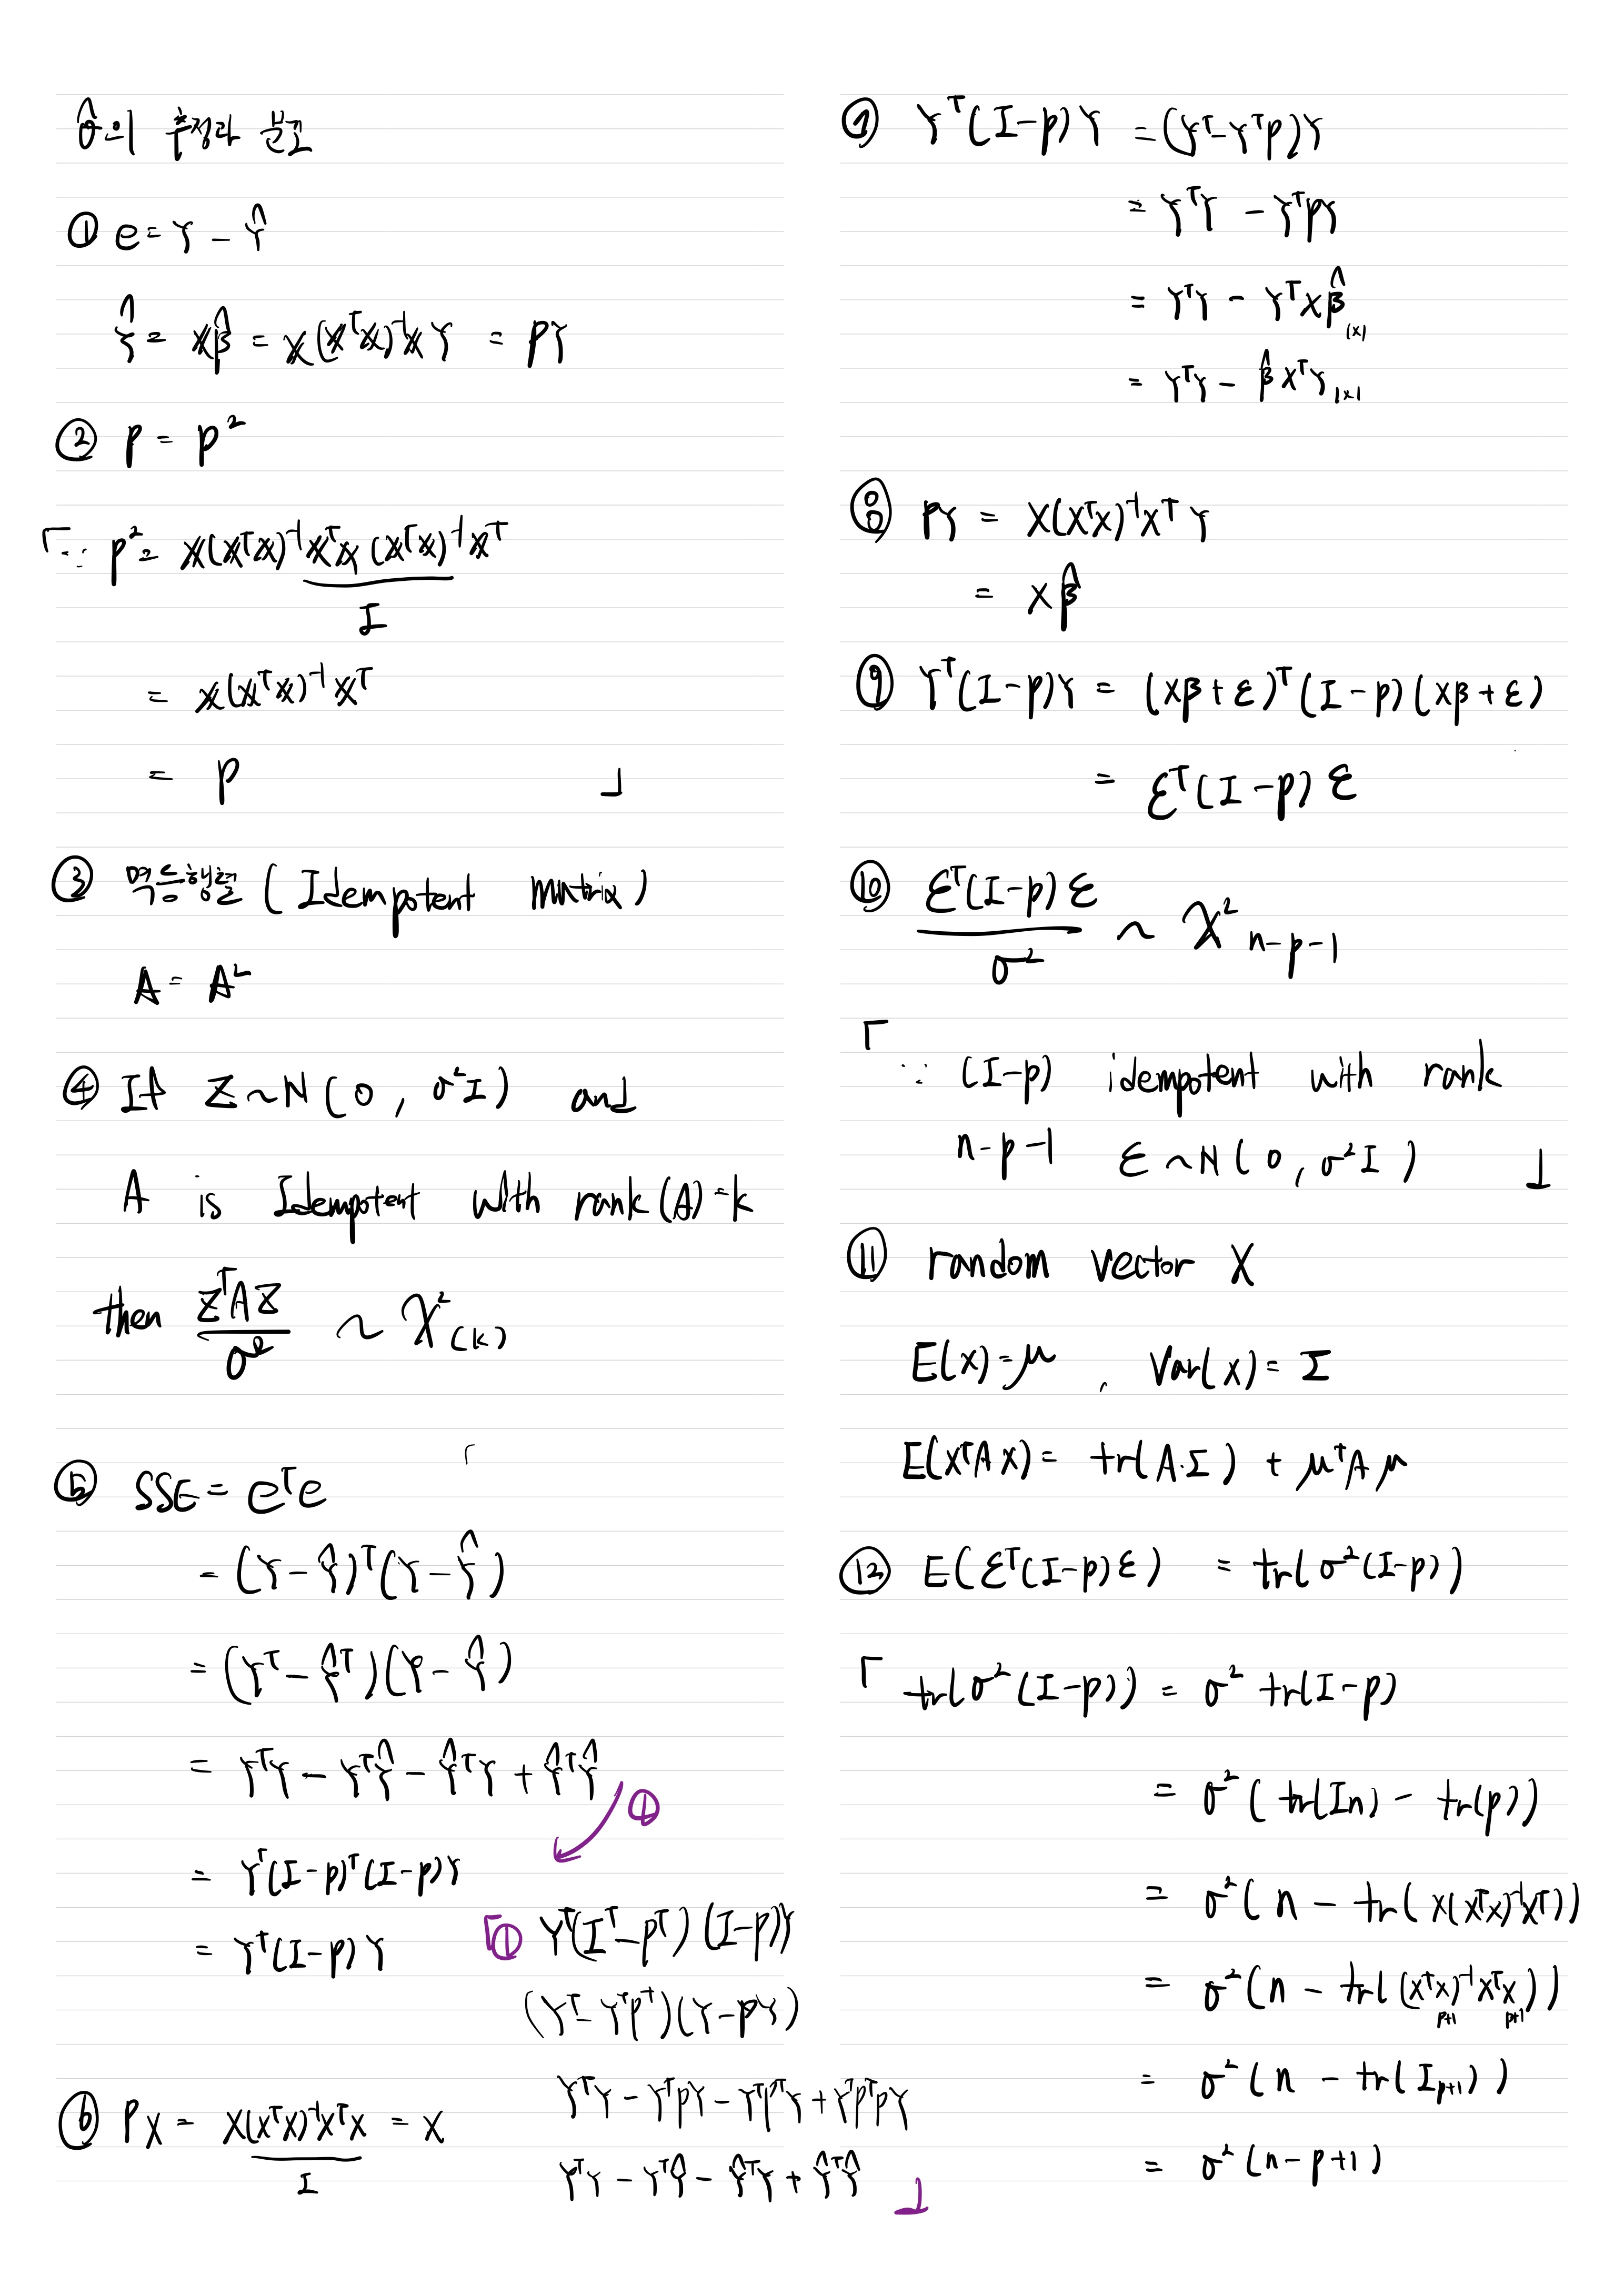 σ̂의 추정과 분포
① e = Y − Ŷ
Ŷ = Xβ̂ = X(XᵀX)⁻¹XY = PY
② P = P²
「∵ P² = X(XᵀX)⁻¹XᵀX(XᵀX)⁻¹Xᵀ
I
= X(XᵀX)⁻¹Xᵀ
= P 」
③ 멱등행렬 (Idempotent matrix)
A = A²
④ If Z ~ N(0, σ²I) and
A is Idempotent with rank(A) = k
then ZᵀAZ/σ² ~ χ²(k)
⑤ SSE = eᵀe
= (Y − Ŷ)ᵀ(Y − Ŷ)
= (Yᵀ − Ŷᵀ)(Y − Ŷ)
= YᵀY − YᵀŶ − ŶᵀY + ŶᵀŶ
①
= Yᵀ(I−P)ᵀ(I−P)Y
= Yᵀ(I−P)Y
「① Yᵀ(Iᵀ−Pᵀ)(I−P)Y
(Yᵀ − YᵀPᵀ)(Y−PY)
YᵀY − YᵀPY − YᵀPᵀY + YᵀPᵀPY
YᵀY − YᵀŶ − ŶᵀY + ŶᵀŶ 」
⑥ PX = X(XᵀX)⁻¹XᵀX = X
I
⑦ Yᵀ(I−P)Y = (Yᵀ−YᵀP)Y
= YᵀY − YᵀPY
= YᵀY − YᵀXβ̂ 1×1
= YᵀY − β̂XᵀY 1×1
⑧ PY = X(XᵀX)⁻¹XᵀY
= Xβ̂
⑨ Yᵀ(I−P)Y = (Xβ+ε)ᵀ(I−P)(Xβ+ε)
= εᵀ(I−P)ε
⑩ εᵀ(I−P)ε/σ² ~ χ² n−p−1
「
∵ (I−P) idempotent with rank
n−p−1 ε ~ N(0, σ²I) 」
⑪ random vector X
E(X)=μ , Var(X)=Σ
E(XᵀAX) = tr(A·Σ) + μᵀAμ
⑫ E(εᵀ(I−P)ε) = tr(σ²(I−P))
「 tr(σ²(I−P)) = σ² tr(I−P)
= σ²(tr(In) − tr(P))
= σ²(n − tr(X(XᵀX)⁻¹Xᵀ))
= σ²(n − tr((XᵀX)⁻¹XᵀX))
p+1 p+1
= σ²(n − tr(Ip+1))
= σ²(n−p+1)